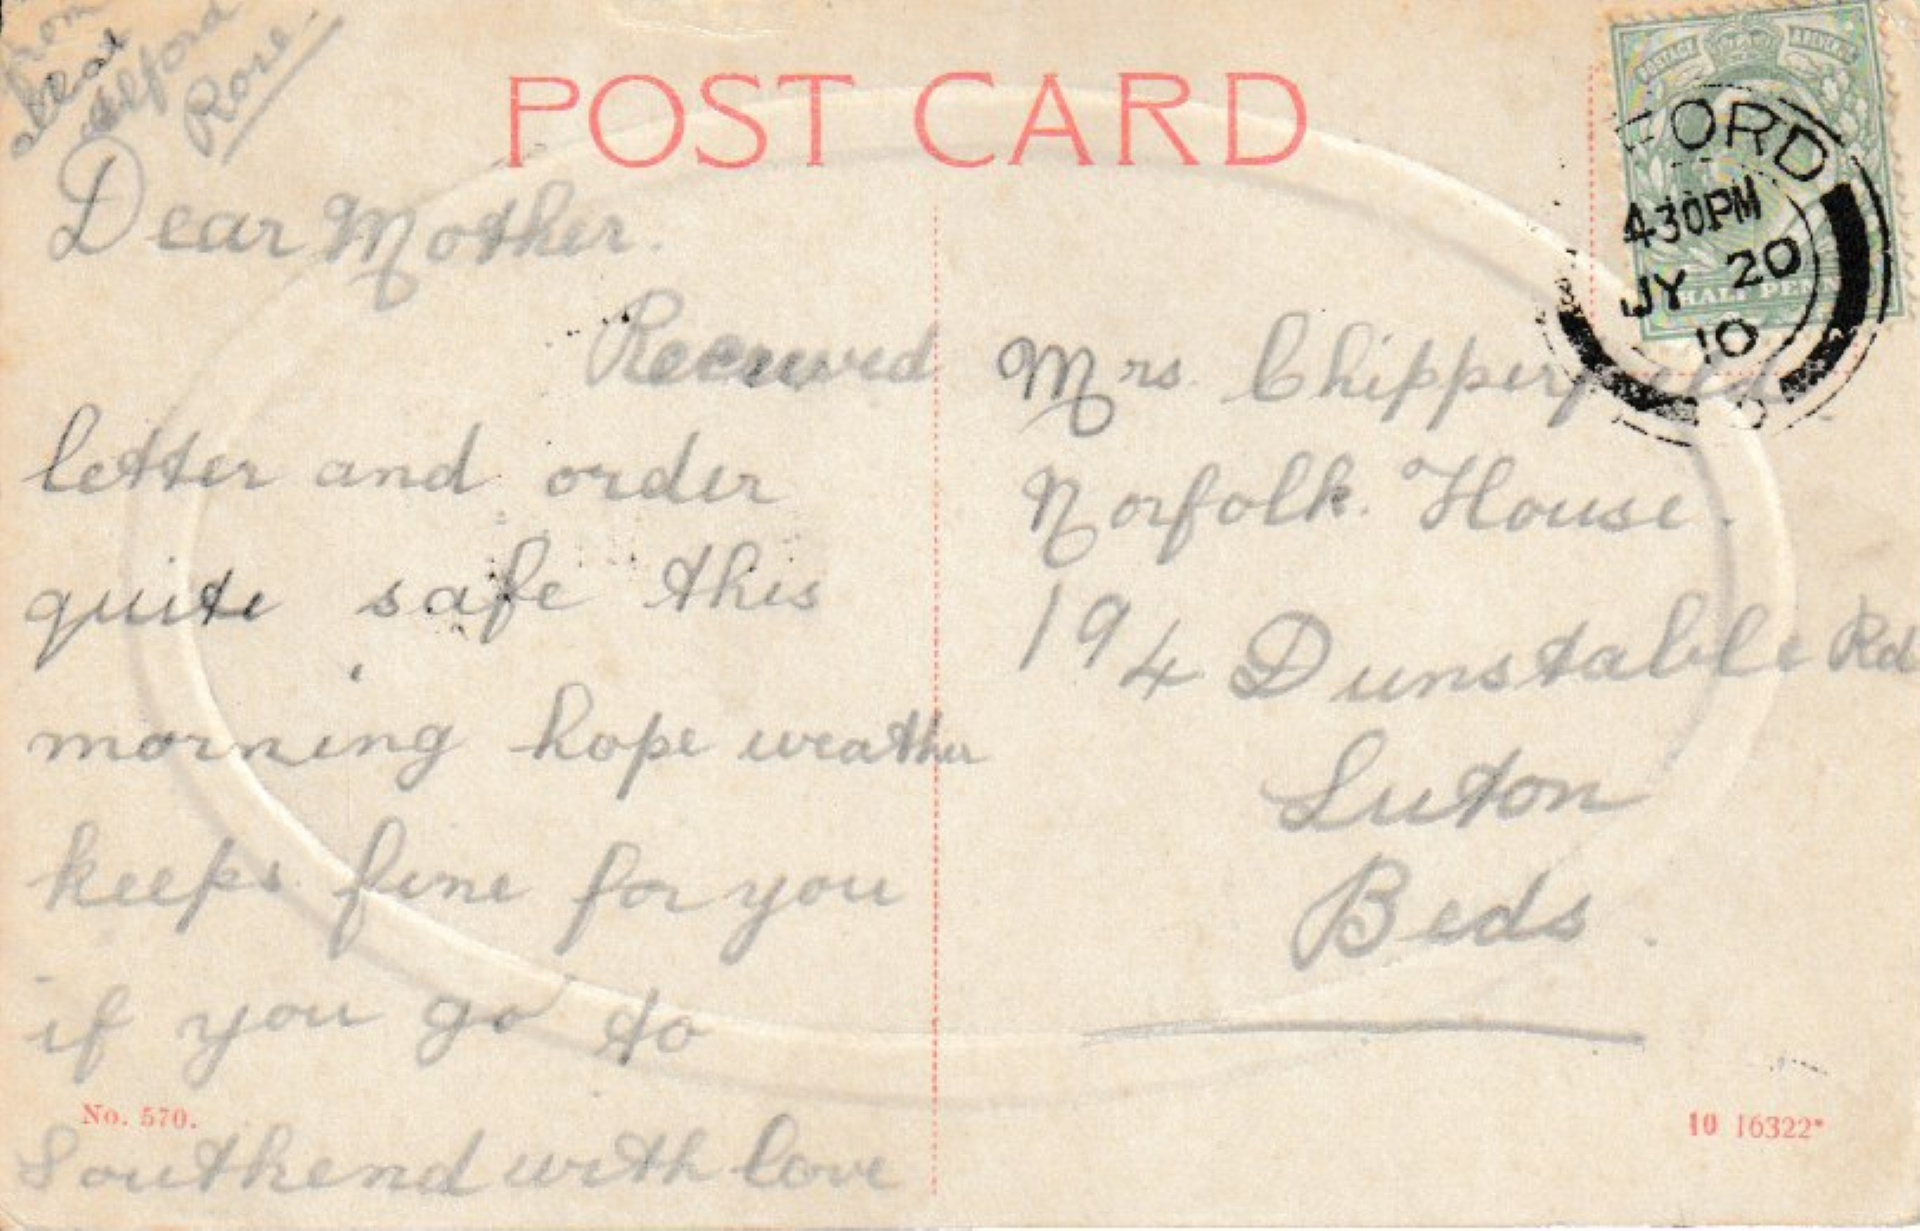 POST CARD
POSTAGE REVENUE
HALF PENN
FORD
4 30 PM
JY 20
10
Dear Mother.
Received
letter and order
quite safe this
morning hope weather
keeps fine for you
if you go to
Southend with love
from
Rose
Mrs. Chipperfield
Norfolk. House.
194 Dunstable Rd
Luton
Beds.
No. 570.
10 16322*